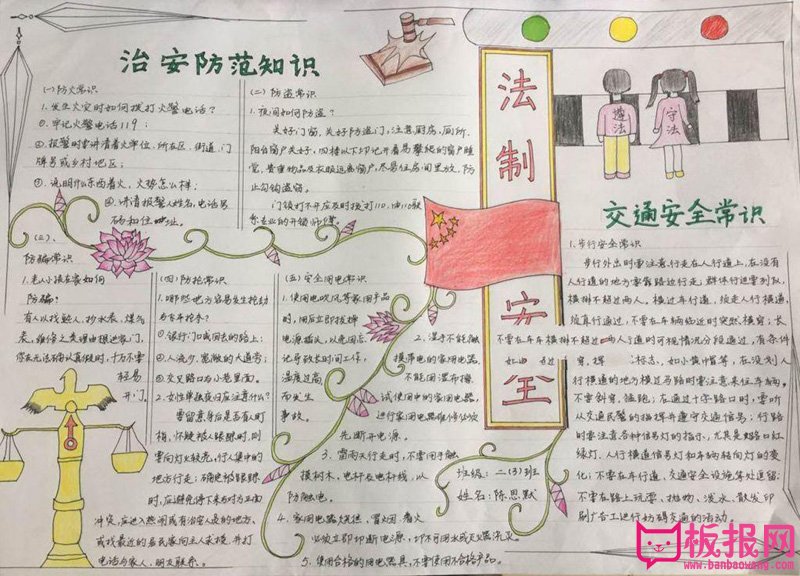 治安防范知识
(一)防火常识
1.发生火灾时如何拨打火警电话？
①.牢记火警电话119；
②.报警时要讲清着火单位.所在区、街道、门
牌号或乡村地区；
③.说明什么东西着火，火势怎么样；
④.讲清报警人姓名,电话号
码和住址。
(二)防盗常识
1.夜间如何防盗？
关好门窗,关好防盗门,注意厨房、厕所、
阳台窗户关好,
觉,贵重物品及衣服远离窗户,尽量往房间里放,防
止勾钩盗窃。
门锁打不开应及时拨打110,由110联
系专业的开锁师傅。
(三)、
防骗常识
1.老人小孩在家如何
防骗？
有人以找熟人,抄水表、煤气
表,维修之类理由跟进家门,
你在无法确认真假时,千万不要
轻易
开门。
(四)防抢常识
1.哪些地方容易发生抢劫
与夺车抢夺？
①银行门口或回去的路上；
②人流少、宽敞的人道旁；
③交叉路口与小巷里面。
2.女性单独夜归应注意什么？
要留意身后是否有人盯
梢,怀疑被人跟踪时,则
要向灯火较亮,行人集中的
地方行走；确定被跟踪
时,应避免停下来与对方正面
冲突,应进入热闹或有治安人员的地方、
或找最近的居民家向主人求援,并打
电话与家人、朋友联系。
(五)安全用电常识
1.使用电吹风等家用产品
时,用后立即拔掉
电源插头,以免因忘
记导致长时间工作,
温度过高
而发生
事故。
2.湿手不能触
摸带电的家用电器,
不能用湿布擦
拭使用中的家用电器
进行家用电器维修必须
先断开电源。
3.雷雨天行走时,不要用手触
摸树木,电杆及电杆拉线,以
防触电。
4.家用电器烧焦、冒烟、着火
必须立即切断电源,切不可用水或灭火器
5.使用合格的用电器具,不要使用不合格产品。
班级:二(3)班
姓名:陈思默
法制安全
遵法
守法
交通安全常识
1.步行安全常识
步行外出时要注意,行走在人行道上,在没有
人行道的地方要靠路边行走；群体行进要列队,
横排不超过两人,横过车行道,须走人行横道,
须直行通过,不要在车辆临近时突然横穿；长
不要在车车横排不超过
人行道时可视情况分段通过,有条件
穿,挥
标志,如小黄帽等,在没划人
行横道的地方横过马路时要注意来往车辆,
不要斜穿,猛跑；在通过十字路口时,要听
从交通民警的指挥并遵守交通信号；行路
时要注意各种信号灯的指示,尤其是路口红
绿灯,人行横道信号灯和车辆转向灯的变
化；不要在车行道、交通安全设施等处逗留；
不要在路上玩耍、抛物、泼水、散发印
刷广告工进行妨碍交通的活动。
板报网
www.banbaowang.com